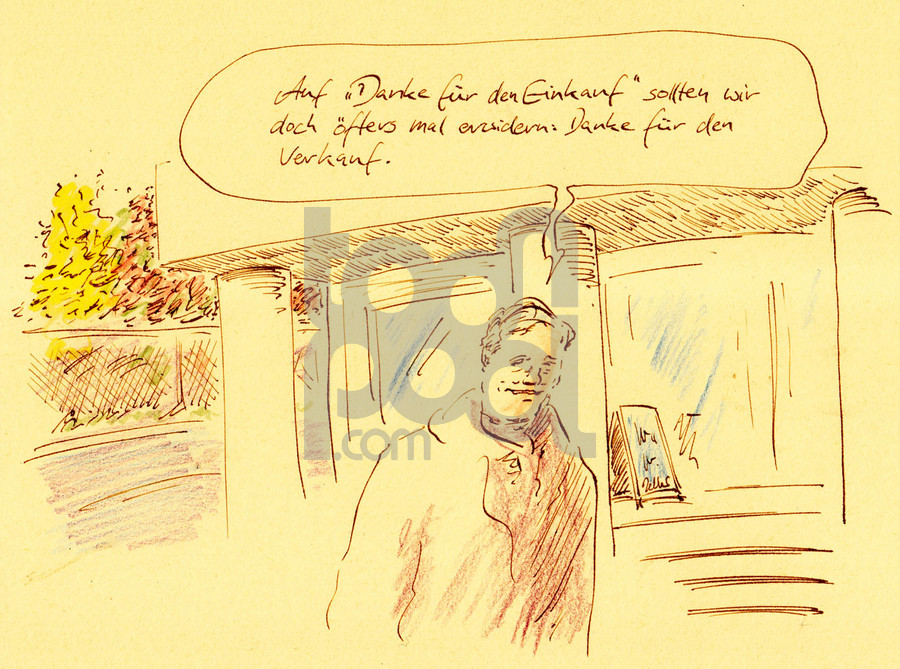 Auf „Danke für den Einkauf“ sollten wir
doch öfters mal erwidern: Danke für den
Verkauf.
toonpool
.com